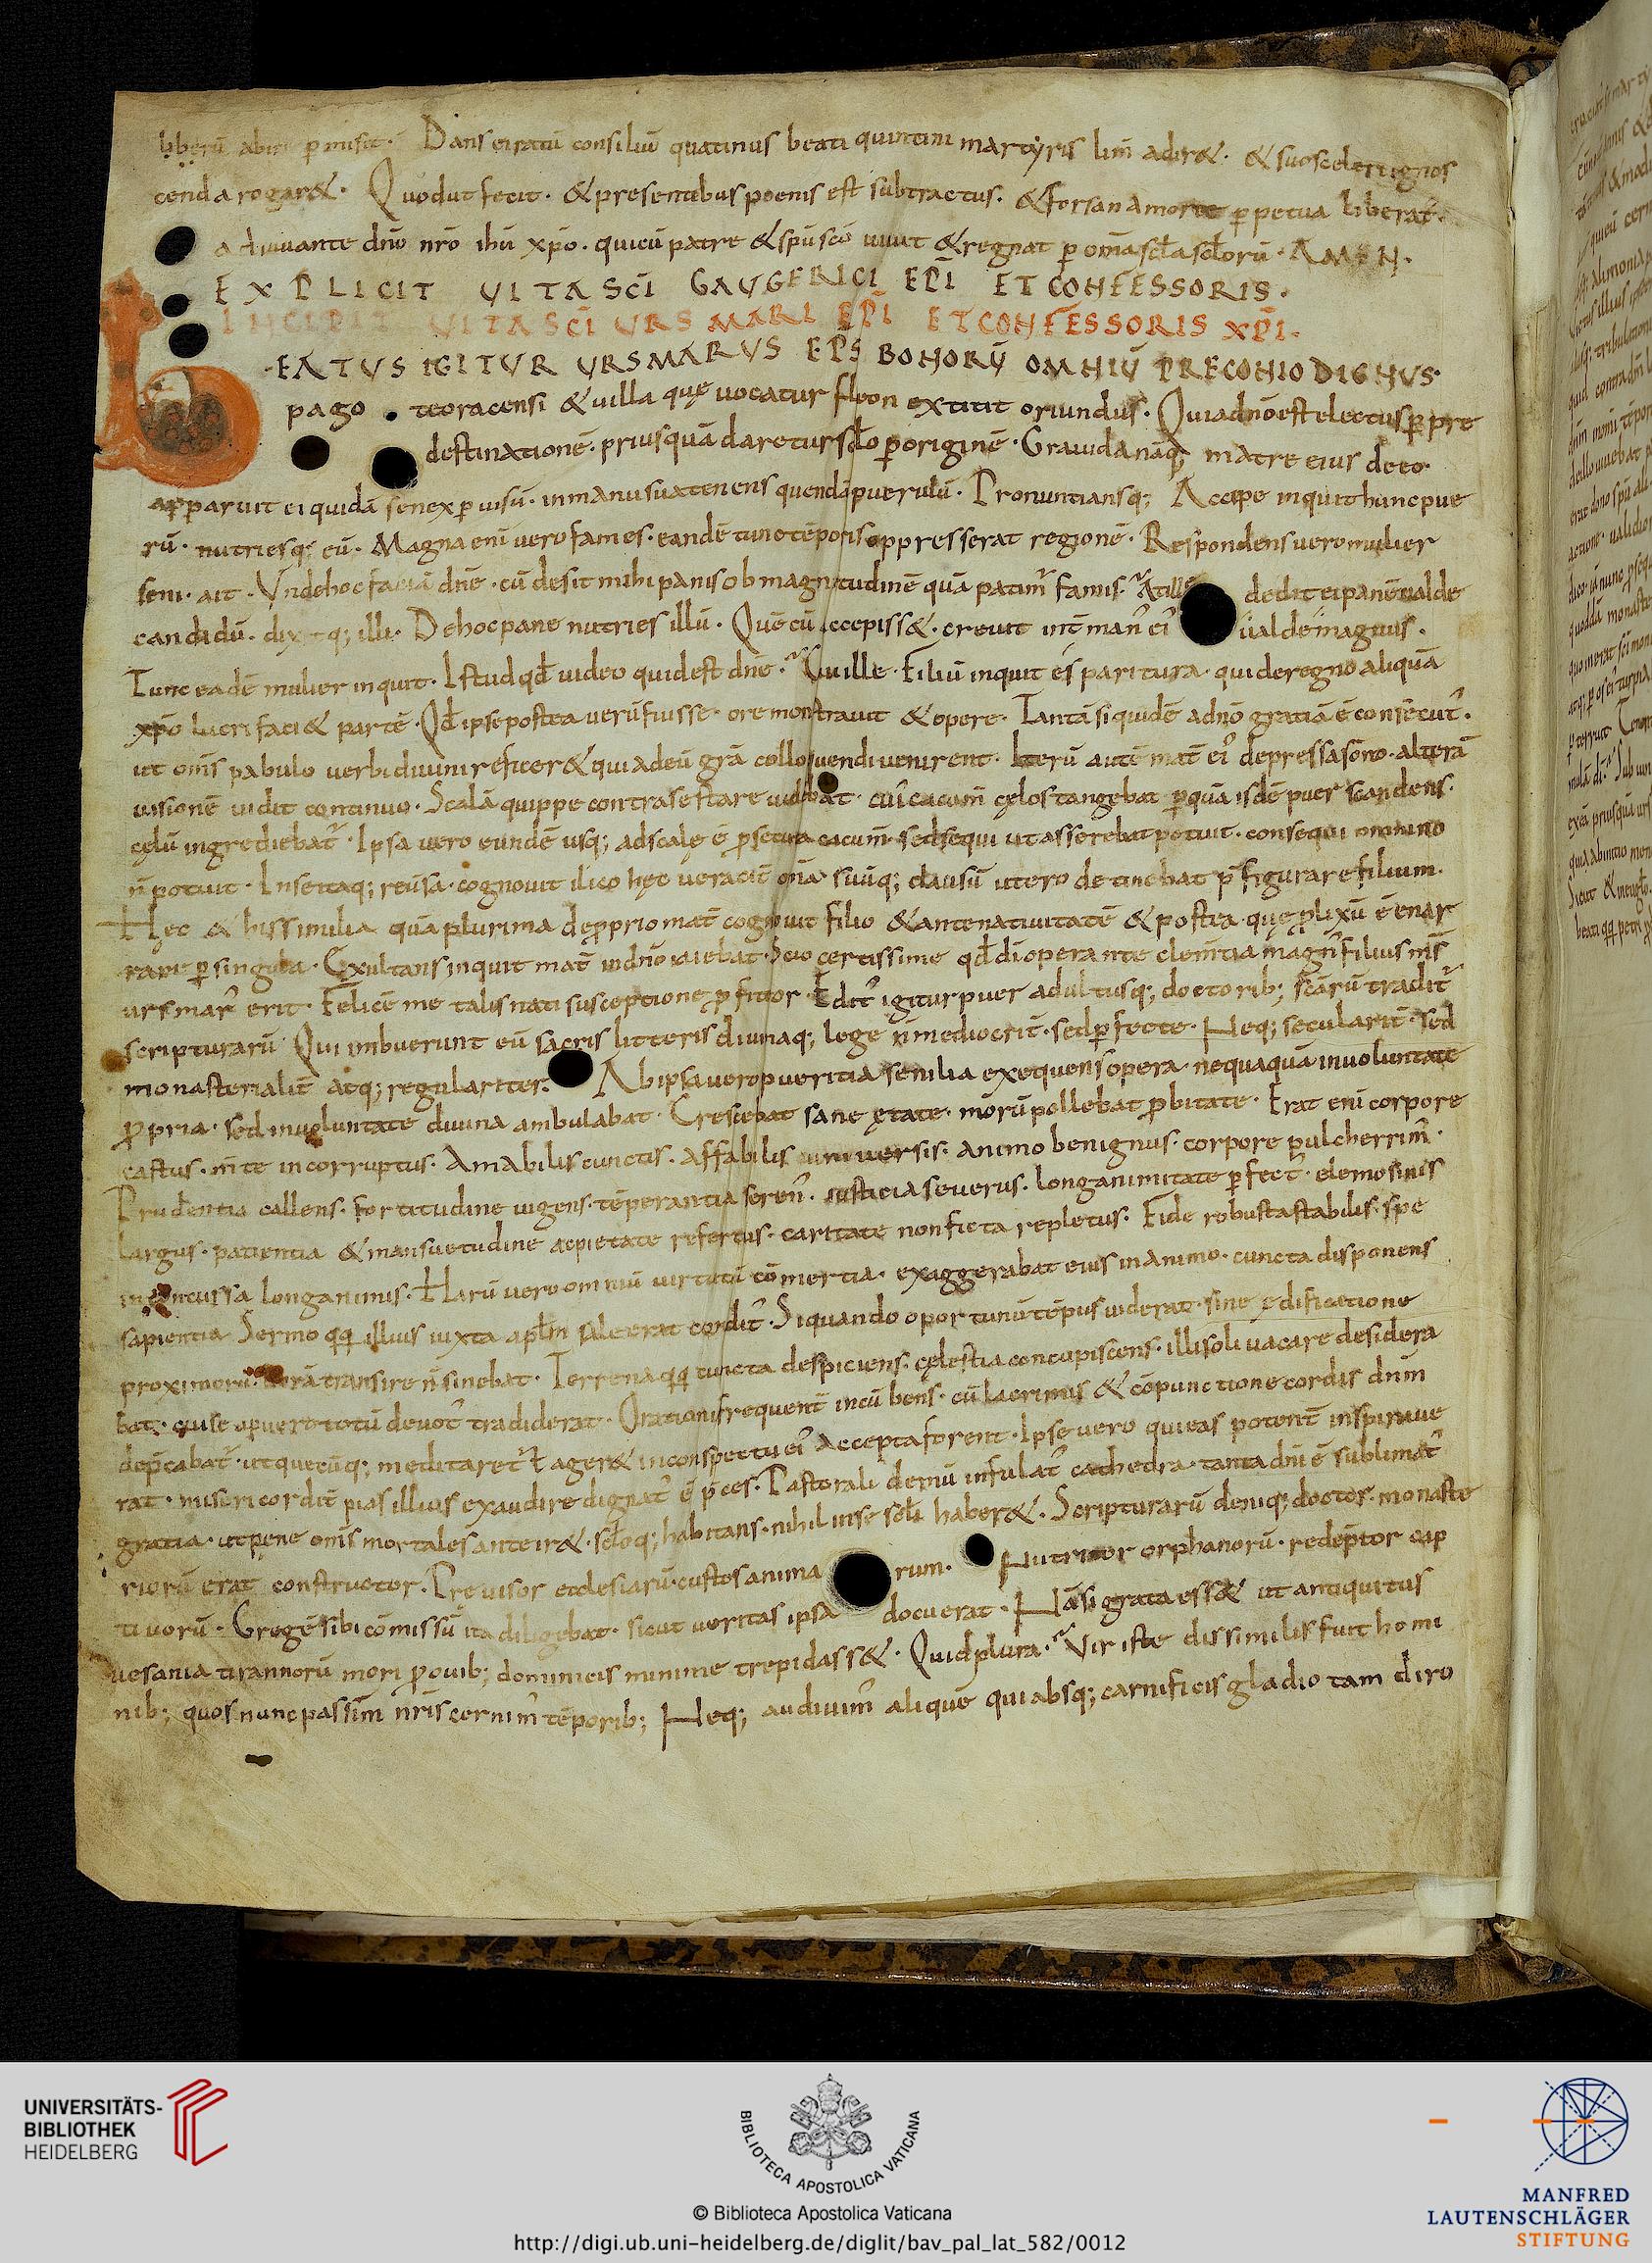 liberū abire ꝑmisit· Dans ei ratū consiliū quatinus beati quintini martyris lim̄ adir&· & suo sceleri ignos
cenda rogar&· Quod ut fecit· & presentibus poenis est subtractus· & forsan a morte ꝑpetua liberat̄·
adiuuante dn̄o nr̄o ihū xp̄o· qui cū patre & sp̄u sc̄o uiuit & regnat ꝑ om̄a scl̄a scl̄orū· AMEN·
EXPLICIT UITA SC̄I GAUGERICI EP̄I ET CONFESSORIS·
INCIPIT UITA SC̄I URSMARI EP̄I ET CONFESSORIS XP̄I·
BEATUS IGITUR URSMARUS EP̄S BONORŪ OMNIŪ PRECONIO DIGNUS·
pago teoracensi & uilla quę uocatur fleon extitit oriundus· Qui a dn̄o est electus ꝑ pre
destinationē· priusquā daretur scl̄o ꝑ originē· Grauida nāq; matre eius de eo·
apparuit ei quidā senex ꝑ uisū· in manu sua tenens quendā puerulū· Pronuntiansq; Accipe inquit hunc pue
rū· nutriesq; eū· Magna enī uero fames· eandē tunc tēporis oppresserat regionē· Respondens uero mulier
seni· ait· Unde hoc faciā dn̄e· cū desit mihi panis ob magnitudinē quā patim̄ famis· At ille dedit ei panē ualde
candidū· dixitq; illi· De hoc pane nutries illū· Quē cū accepiss&· creuit int̄ man᷒ ei᷒ ualde magnus·
Tunc eadē mulier inquit· Istud qd̄ uideo quid est dn̄e· Cui ille· Filiū inquit es paritura· qui de regno aliquā
xp̄o lucri faci& partē· Qd̄ ipse postea uerū fuisse· ore monstrauit & opere· Tantā siquidē a dn̄o gratiā ē consecut᷒·
ut om̄s pabulo uerbi diuini reficer& qui ad eū gr̄a colloquendi uenirent· Iterū autē mat̄ ei᷒ depressa sōno· alterā
uisionē uidit continuo· Scalā quippe contra se stare uidebat· cui᷒ cacum̄ cęlos tangebat ꝑ quā isdē puer scandens·
cęlū ingrediebat᷒· Ipsa uero eundē usq; ad scalę ē ꝓsecuta cacum̄· sed sequi ut asserebat potuit· consequi omnino
n̄ potuit· Inse itaq; reuersa· cognouit ilico hęc uracit̄ om̄a suūq; clausū utero detinebat p̄figurare filium·
Hęc & his similia quā plurima de ꝓprio mat̄ cognouit filio & ante natiuitatē & postea· quę ꝓlixū ē enar
rare ꝑ singula· Exultans inquit mat̄ in dn̄o aiebat· Scio certissime qd̄ dī operante clem̄tia magn᷒ filius m̄s
ursmar᷒ erit· Felicē me talis nati susceptione ꝓfiteor· Edit᷒ igitur puer adultusq; doctorib; scārū tradit᷒
scripturarū· Qui imbuerunt eū sacris litteris diuinaq; lege n̄ mediocrit̄· sed ꝑfecte· Neq; secularit̄· sed
monasterialit̄ atq; regulariter· Ab ipsa uero pueritia senilia exequens opera· nequaquā in uoluntate
ꝓpria· sed in uoluntate diuina ambulabat· Crescebat sane ętate· morū pollebat ꝓbitate· Erat enī corpore
castus· m̄te incorruptus· Amabilis cunctis· affabilis uniuersis· animo benignus· corpore pulcherrim᷒·
Prudentia callens· fortitudine uigens· tēperantia seren᷒· iusticia seuerus· longanimitate ꝑfect᷒· elemosinis
largus· patientia & mansuetudine ac pietate refertus· caritate non ficta repletus· Fide robusta stabilis· spe
inconcussa longanimis· Harū uero omniū uirtutū cōmertia· exaggerabat eius in animo· cuncta disponens
sapientia· Sermo qq̄ illius iuxta apl̄m sale erat condit᷒· Si quando oportunū tēpus uiderat· sine ędificatione
proximorū· horā transire n̄ sinebat· Terrena qq̄ cuncta despiciens· cęlestia concupiscens· illi soli uacare desidera
bat· cui se a puero totū deuot᷒ tradiderat· Orationi frequent̄ incūbens· cū lacrimis & cōpunctione cordis dn̄m
dep̄cabat᷒· ut quecūq; meditaret᷒ ł ager& in conspectu ei᷒ accepta forent· Ipse uero qui eas potent̄ inspiraue
rat· misericordit̄ pias illius exaudire dignat᷒ ē p̄ces· Pastorali demū infulat᷒ cathedra· tanta dn̄i ē sublimat᷒
gratia· ut pene om̄s mortales anteir&· scl̄oq; habitans· nihil in se scl̄i haber&· Scripturarū deniq; doctor· monaste
riorū erat constructor· Prouisor ecclesiarū· custos animarum· Nutritor orphanorū· redēptor cap
tiuorū· Gregē sibi cōmissū ita diligebat· sicut ueritas ipsa docuerat· Nā si grata ess& ut antiquitus
uesania tirannorū mori ꝓ ouib; dominicis minime trepidass&· Quid plura· Vir iste dissimilis fuit homi
nib; quos nunc passim nr̄is cernim᷒ tēporib; Neq; audiuim᷒ aliquē qui absq; carnificis gladio tam diro
UNIVERSITÄTS-
BIBLIOTHEK
HEIDELBERG
BIBLIOTECA APOSTOLICA VATICANA
© Biblioteca Apostolica Vaticana
http://digi.ub.uni-heidelberg.de/diglit/bav_pal_lat_582/0012
MANFRED
LAUTENSCHLÄGER
STIFTUNG